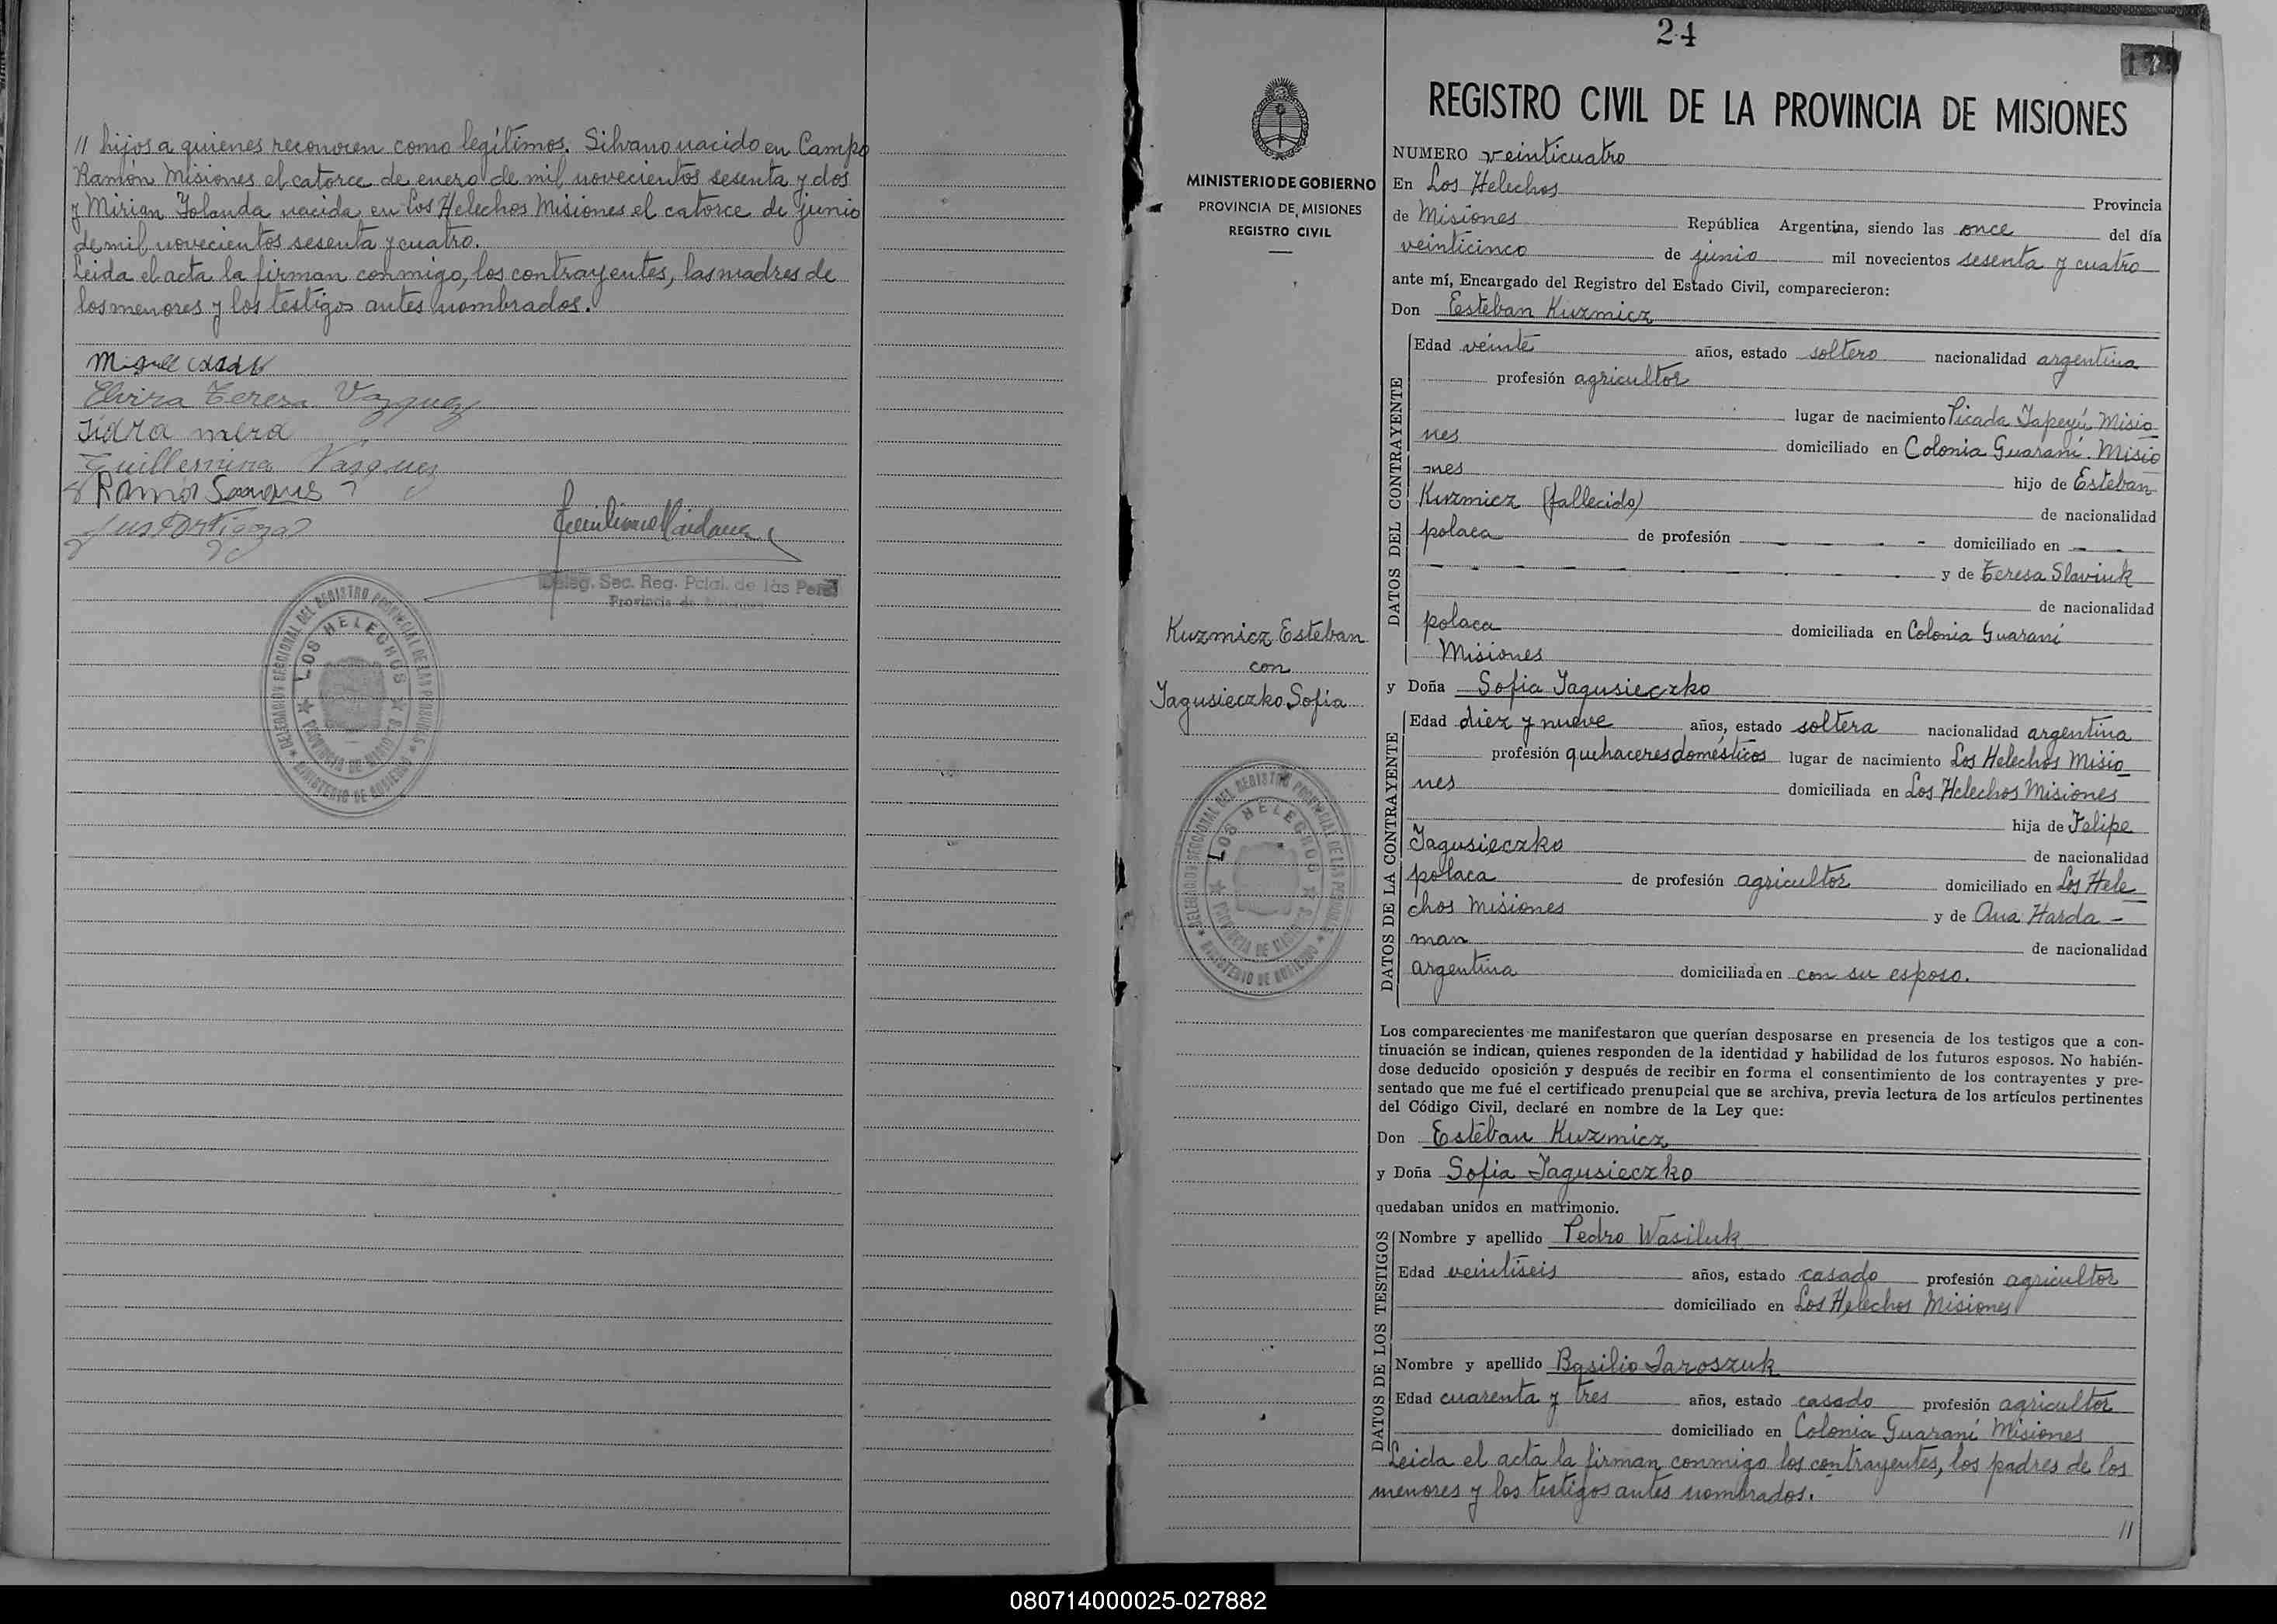 // hijos a quienes reconocen como legítimos. Silvano nacido en Campo
Ramón Misiones el catorce de enero de mil novecientos sesenta y dos
y Mirian Yolanda nacida en Los Helechos Misiones el catorce de junio
de mil novecientos sesenta y cuatro.
Leida el acta la firman conmigo, los contrayentes, las madres de
los menores y los testigos antes nombrados.
Elvira Teresa Vazquez
Guillermina Vasquez
Deleg. Sec. Reg. Pcial. de las Pers.
Provincia de Misiones
DELEGACION SECCIONAL DEL REGISTRO PROVINCIAL DE LAS PERSONAS
LOS HELECHOS
PROVINCIA DE MISIONES
MINISTERIO DE GOBIERNO
24
17
REGISTRO CIVIL DE LA PROVINCIA DE MISIONES
MINISTERIO DE GOBIERNO
PROVINCIA DE MISIONES
REGISTRO CIVIL
Kuzmicz Esteban
con
Jagusieczko Sofia
DELEGACION SECCIONAL DEL REGISTRO PROVINCIAL DE LAS PERSONAS
LOS HELECHOS
PROVINCIA DE MISIONES
MINISTERIO DE GOBIERNO
NUMERO veinticuatro
En Los Helechos Provincia
de Misiones República Argentina, siendo las once del día
veinticinco de junio mil novecientos sesenta y cuatro
ante mí, Encargado del Registro del Estado Civil, comparecieron:
Don Esteban Kuzmicz
DATOS DEL CONTRAYENTE
Edad veinte años, estado soltero nacionalidad argentina
profesión agricultor
lugar de nacimiento Picada Yapeyú Misio
nes domiciliado en Colonia Guaraní. Misio
nes hijo de Esteban
Kuzmicz (fallecido) de nacionalidad
polaca de profesión - - - domiciliado en - -
- - - - y de Teresa Slaviuk
de nacionalidad
polaca domiciliada en Colonia Guaraní
Misiones
y Doña Sofia Jagusieczko
DATOS DE LA CONTRAYENTE
Edad diez y nueve años, estado soltera nacionalidad argentina
profesión quehaceres domésticos lugar de nacimiento Los Helechos Misio
nes domiciliada en Los Helechos Misiones
hija de Felipe
Jagusieczko de nacionalidad
polaca de profesión agricultor domiciliado en Los Hele
chos Misiones y de Ana Harda -
man de nacionalidad
argentina domiciliada en con su esposo.
Los comparecientes me manifestaron que querían desposarse en presencia de los testigos que a con-
tinuación se indican, quienes responden de la identidad y habilidad de los futuros esposos. No habién-
dose deducido oposición y después de recibir en forma el consentimiento de los contrayentes y pre-
sentado que me fué el certificado prenupcial que se archiva, previa lectura de los artículos pertinentes
del Código Civil, declaré en nombre de la Ley que:
Don Esteban Kuzmicz
y Doña Sofia Jagusieczko
quedaban unidos en matrimonio.
DATOS DE LOS TESTIGOS
Nombre y apellido Pedro Wasiluk
Edad veintiseis años, estado casado profesión agricultor
domiciliado en Los Helechos Misiones
Nombre y apellido Basilio Jaroszuk
Edad cuarenta y tres años, estado casado profesión agricultor
domiciliado en Colonia Guaraní Misiones
Leida el acta la firman conmigo los contrayentes, los padres de los
menores y los testigos antes nombrados.
//
080714000025-027882